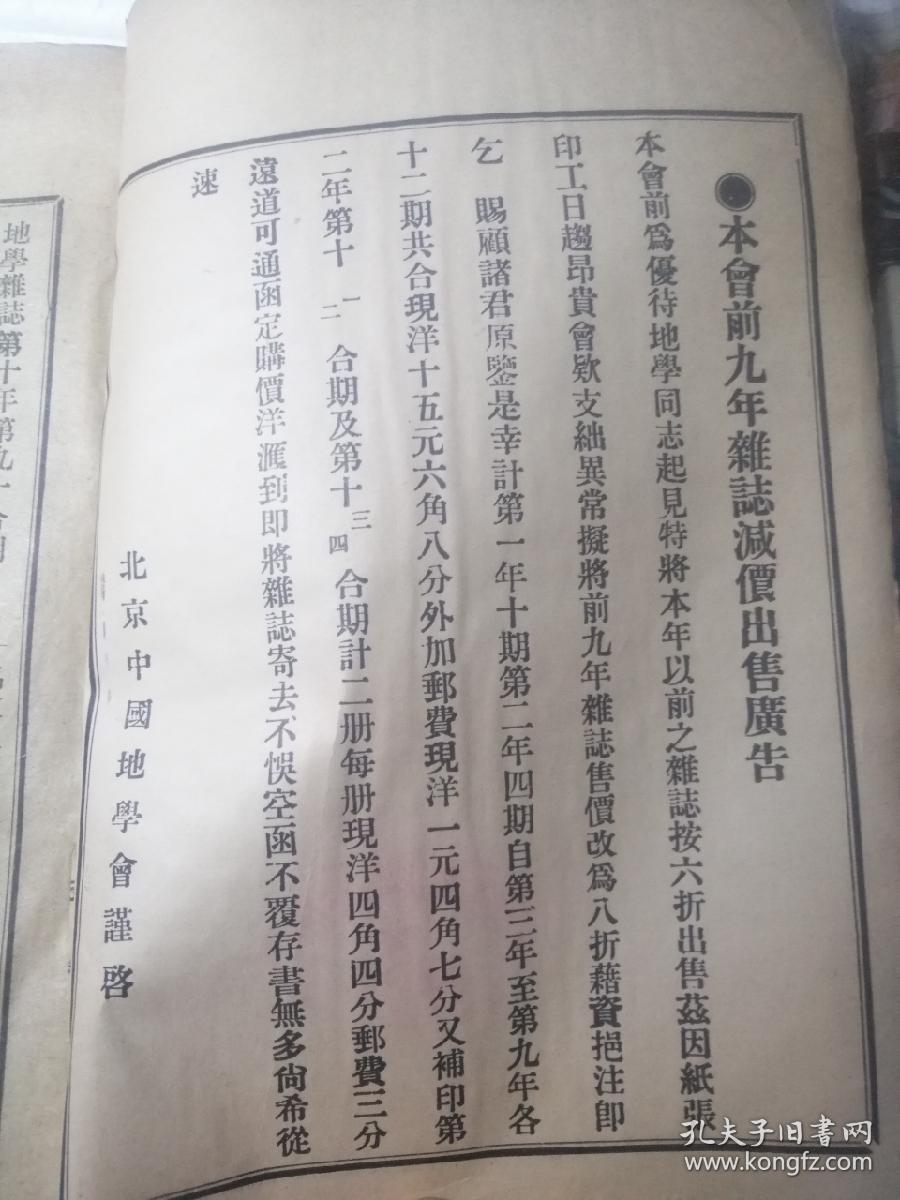 ●本會前九年雜誌減價出售廣告
本會前爲優待地學同志起見特將本年以前之雜誌按六折出售茲因紙張
印工日趨昂貴會欵支絀異常擬將前九年雜誌售價改爲八折藉資挹注卽
乞　賜顧諸君原鑒是幸計第一年十期第二年四期自第三年至第九年各
十二期共合現洋十五元六角八分外加郵費現洋一元四角七分又補印第
二年第十一二合期及第十三四合期計二册每册現洋四角四分郵費三分
遠道可通函定購價洋滙到即將雜誌寄去不悞空函不覆存書無多尙希從
速
北京中國地學會謹啓
地學雜誌第十年第九十合期
孔夫子旧书网
www.kongfz.com